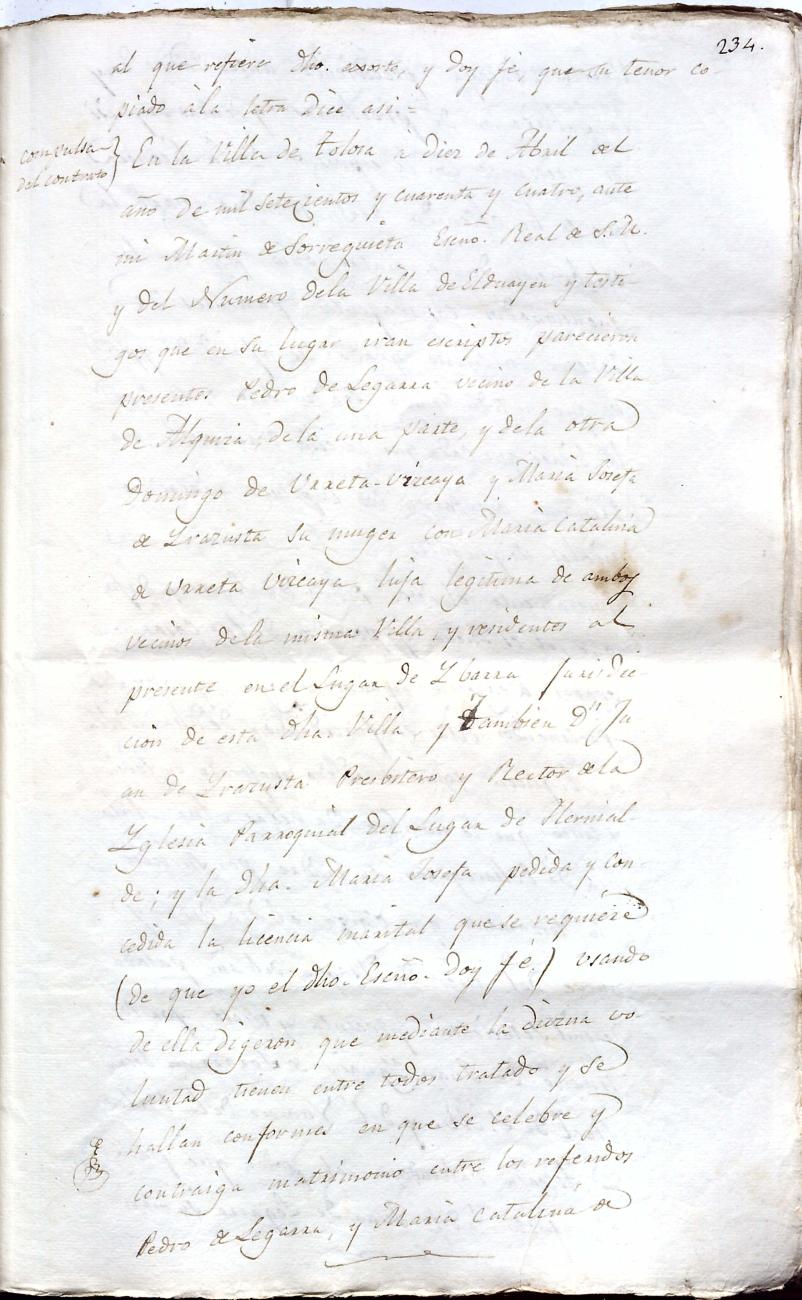 234.
al que refiere dho. exorto, y doy fé, que su tenor co-
piado á la letra dice asi.=
compulsa
del contrato} En la Villa de Tolosa a diez de Abril del
año de mil setecientos y cuarenta y cuatro, ante
mi Martin de Sorreguieta Esno. Real de S.M.
y del Numero dela Villa de Elduayen y testi-
gos que en su lugar iran escriptos parecieron
presentes Pedro de Legarra vecino de la Villa
de Alquiza dela una parte, y dela otra
Domingo de Urreta-Vizcaya y Maria Josefa
de Yrazusta su muger con Maria Catalina
de Urreta Vizcaya hija legitima de ambos
vecinos dela misma Villa, y residentes al
presente en el Lugar de Ybarra Jurisdic-
cion de esta dha. Villa, y Tambien Dn. Ju
an de Yrazusta Presbitero y Rector dela
Yglesia Parroquial del Lugar de Hernial-
de; y la dha. Maria Josefa pedida y con-
cedida la licencia marital que se requiere
(de que yo el dho. Esno. doy fé.) usando
de ella digeron que mediante la divina vo
luntad tienen entre todos tratado y se
hallan conformes en que se celebre y
contraiga matrimonio entre los referidos
Pedro de Legarra, y Maria Catalina de